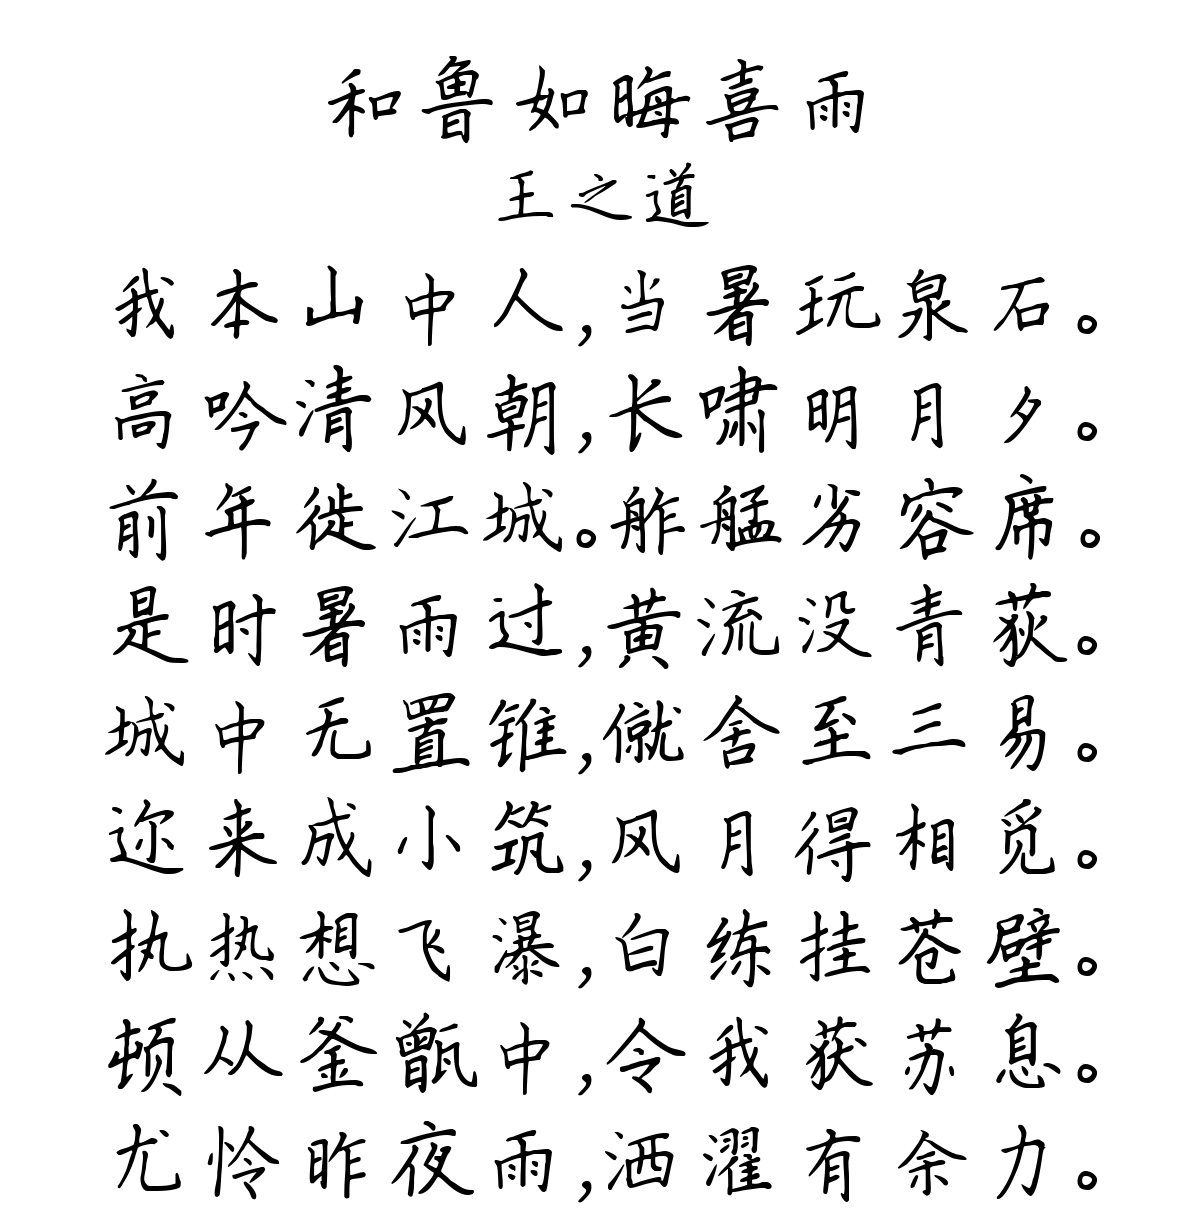 和鲁如晦喜雨
王之道
我本山中人,当暑玩泉石。
高吟清风朝,长啸明月夕。
前年徙江城。舴艋劣容席。
是时暑雨过,黄流没青荻。
城中无置锥,僦舍至三易。
迩来成小筑,风月得相觅。
执热想飞瀑,白练挂苍壁。
顿从釜甑中,令我获苏息。
尤怜昨夜雨,洒濯有余力。